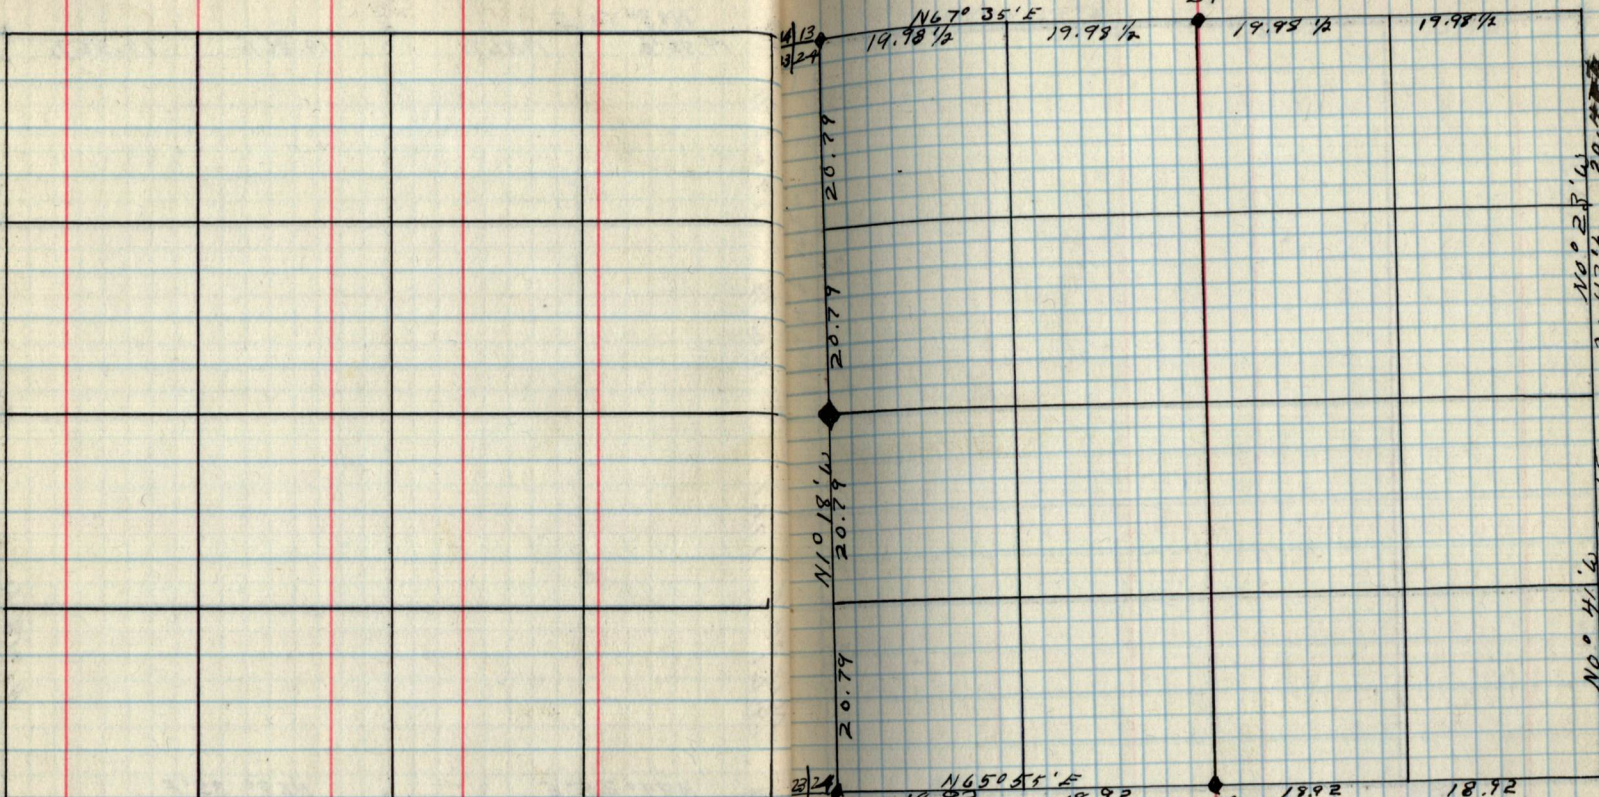 14 13
23 24
N67° 35' E
19.98 1/2 19.98 1/2 19.98 1/2 19.98 1/2
20.79
20.79
N1° 18' W
20.79
20.79
N0° 23' W
N0° 41' W
23 24
N65° 55' E
18.92 18.92 18.92